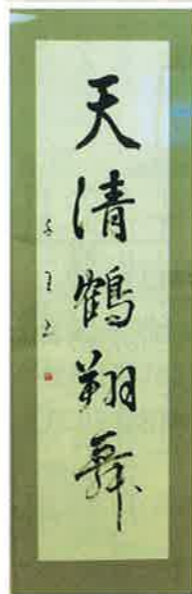 天清鶴翔舞